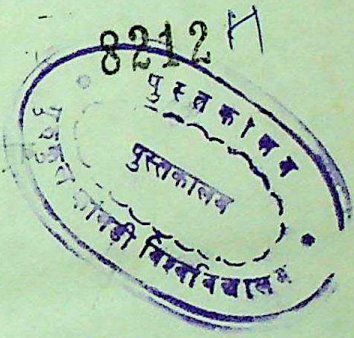 8212
पुस्तकालय
पुस्तकालय
गुरुकुल काँगड़ी विश्वविद्यालय